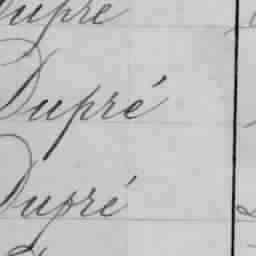 Dupré
Dupré
Dupré